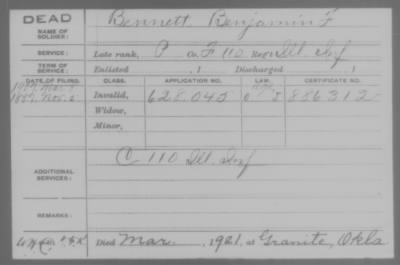 DEAD
NAME OF SOLDIER:
Bennett, Benjamin F
SERVICE:
Late rank, P Co. F 110 REG'T Ill. Inf
TERM OF SERVICE:
Enlisted , 1 Discharged , 1
DATE OF FILING. CLASS. APPLICATION NO. LAW. CERTIFICATE NO.
1887, Nov. 2 Invalid, 628.045 886312
Widow,
Minor,
C 110 Ill. Inf
ADDITIONAL SERVICES:
REMARKS:
Died Mar , 1921, at Granite, Okla